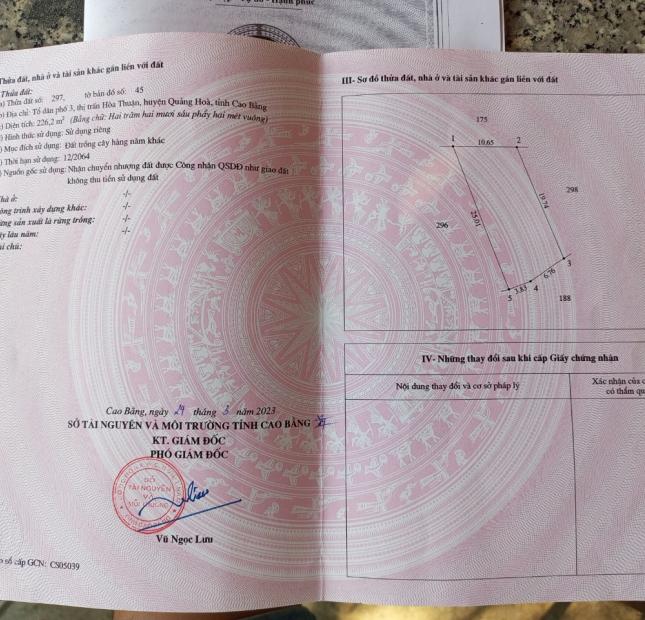 hạnh phúc
Thửa đất, nhà ở và tài sản khác gắn liền với đất
Thửa đất:
a) Thửa đất số: 297, tờ bản đồ số: 45
b) Địa chỉ: Tổ dân phố 3, thị trấn Hòa Thuận, huyện Quảng Hoà, tỉnh Cao Bằng
c) Diện tích: 226,2 m² (Bằng chữ: Hai trăm hai mươi sáu phẩy hai mét vuông)
Hình thức sử dụng: Sử dụng riêng
) Mục đích sử dụng: Đất trồng cây hàng năm khác
) Thời hạn sử dụng: 12/2064
) Nguồn gốc sử dụng: Nhận chuyển nhượng đất được Công nhận QSDĐ như giao đất
không thu tiền sử dụng đất
Nhà ở: -/-
ông trình xây dựng khác: -/-
ừng sản xuất là rừng trồng: -/-
y lâu năm: -/-
i chú:
Cao Bằng, ngày 29 tháng 3 năm 2023
SỞ TÀI NGUYÊN VÀ MÔI TRƯỜNG TỈNH CAO BẰNG
KT. GIÁM ĐỐC
PHÓ GIÁM ĐỐC
SỞ
TÀI NGUYÊN
VÀ
MÔI TRƯỜNG
Vũ Ngọc Lưu
o sổ cấp GCN: CS05039
III- Sơ đồ thửa đất, nhà ở và tài sản khác gắn liền với đất
175
1 10.65 2
19.74
298
25.01
296
3
6.76
4
3.83
5
188
IV- Những thay đổi sau khi cấp Giấy chứng nhận
Nội dung thay đổi và cơ sở pháp lý
Xác nhận của c
có thẩm qu